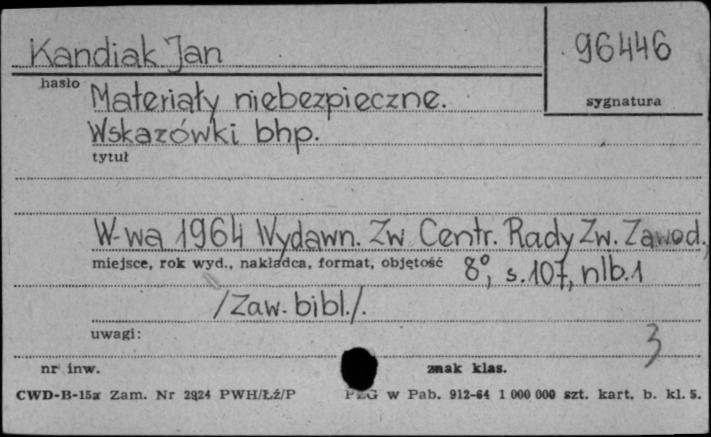 Kandiak Jan
96446
hasło
sygnatura
Materiały niebezpieczne.
Wskazówki bhp.
tytuł
W-wa 1964 Wydawn. Zw Centr. Rady Zw. Zawod.,
miejsce, rok wyd., nakładca, format, objętość
8°, s. 107, nlb. 1
/Zaw. bibl./.
uwagi:
3
nr inw.
znak klas.
CWD-B-15a Zam. Nr 2924 PWH/Łź/P
w Pab. 912-64 1 000 000 szt. kart. b. kl. 5.